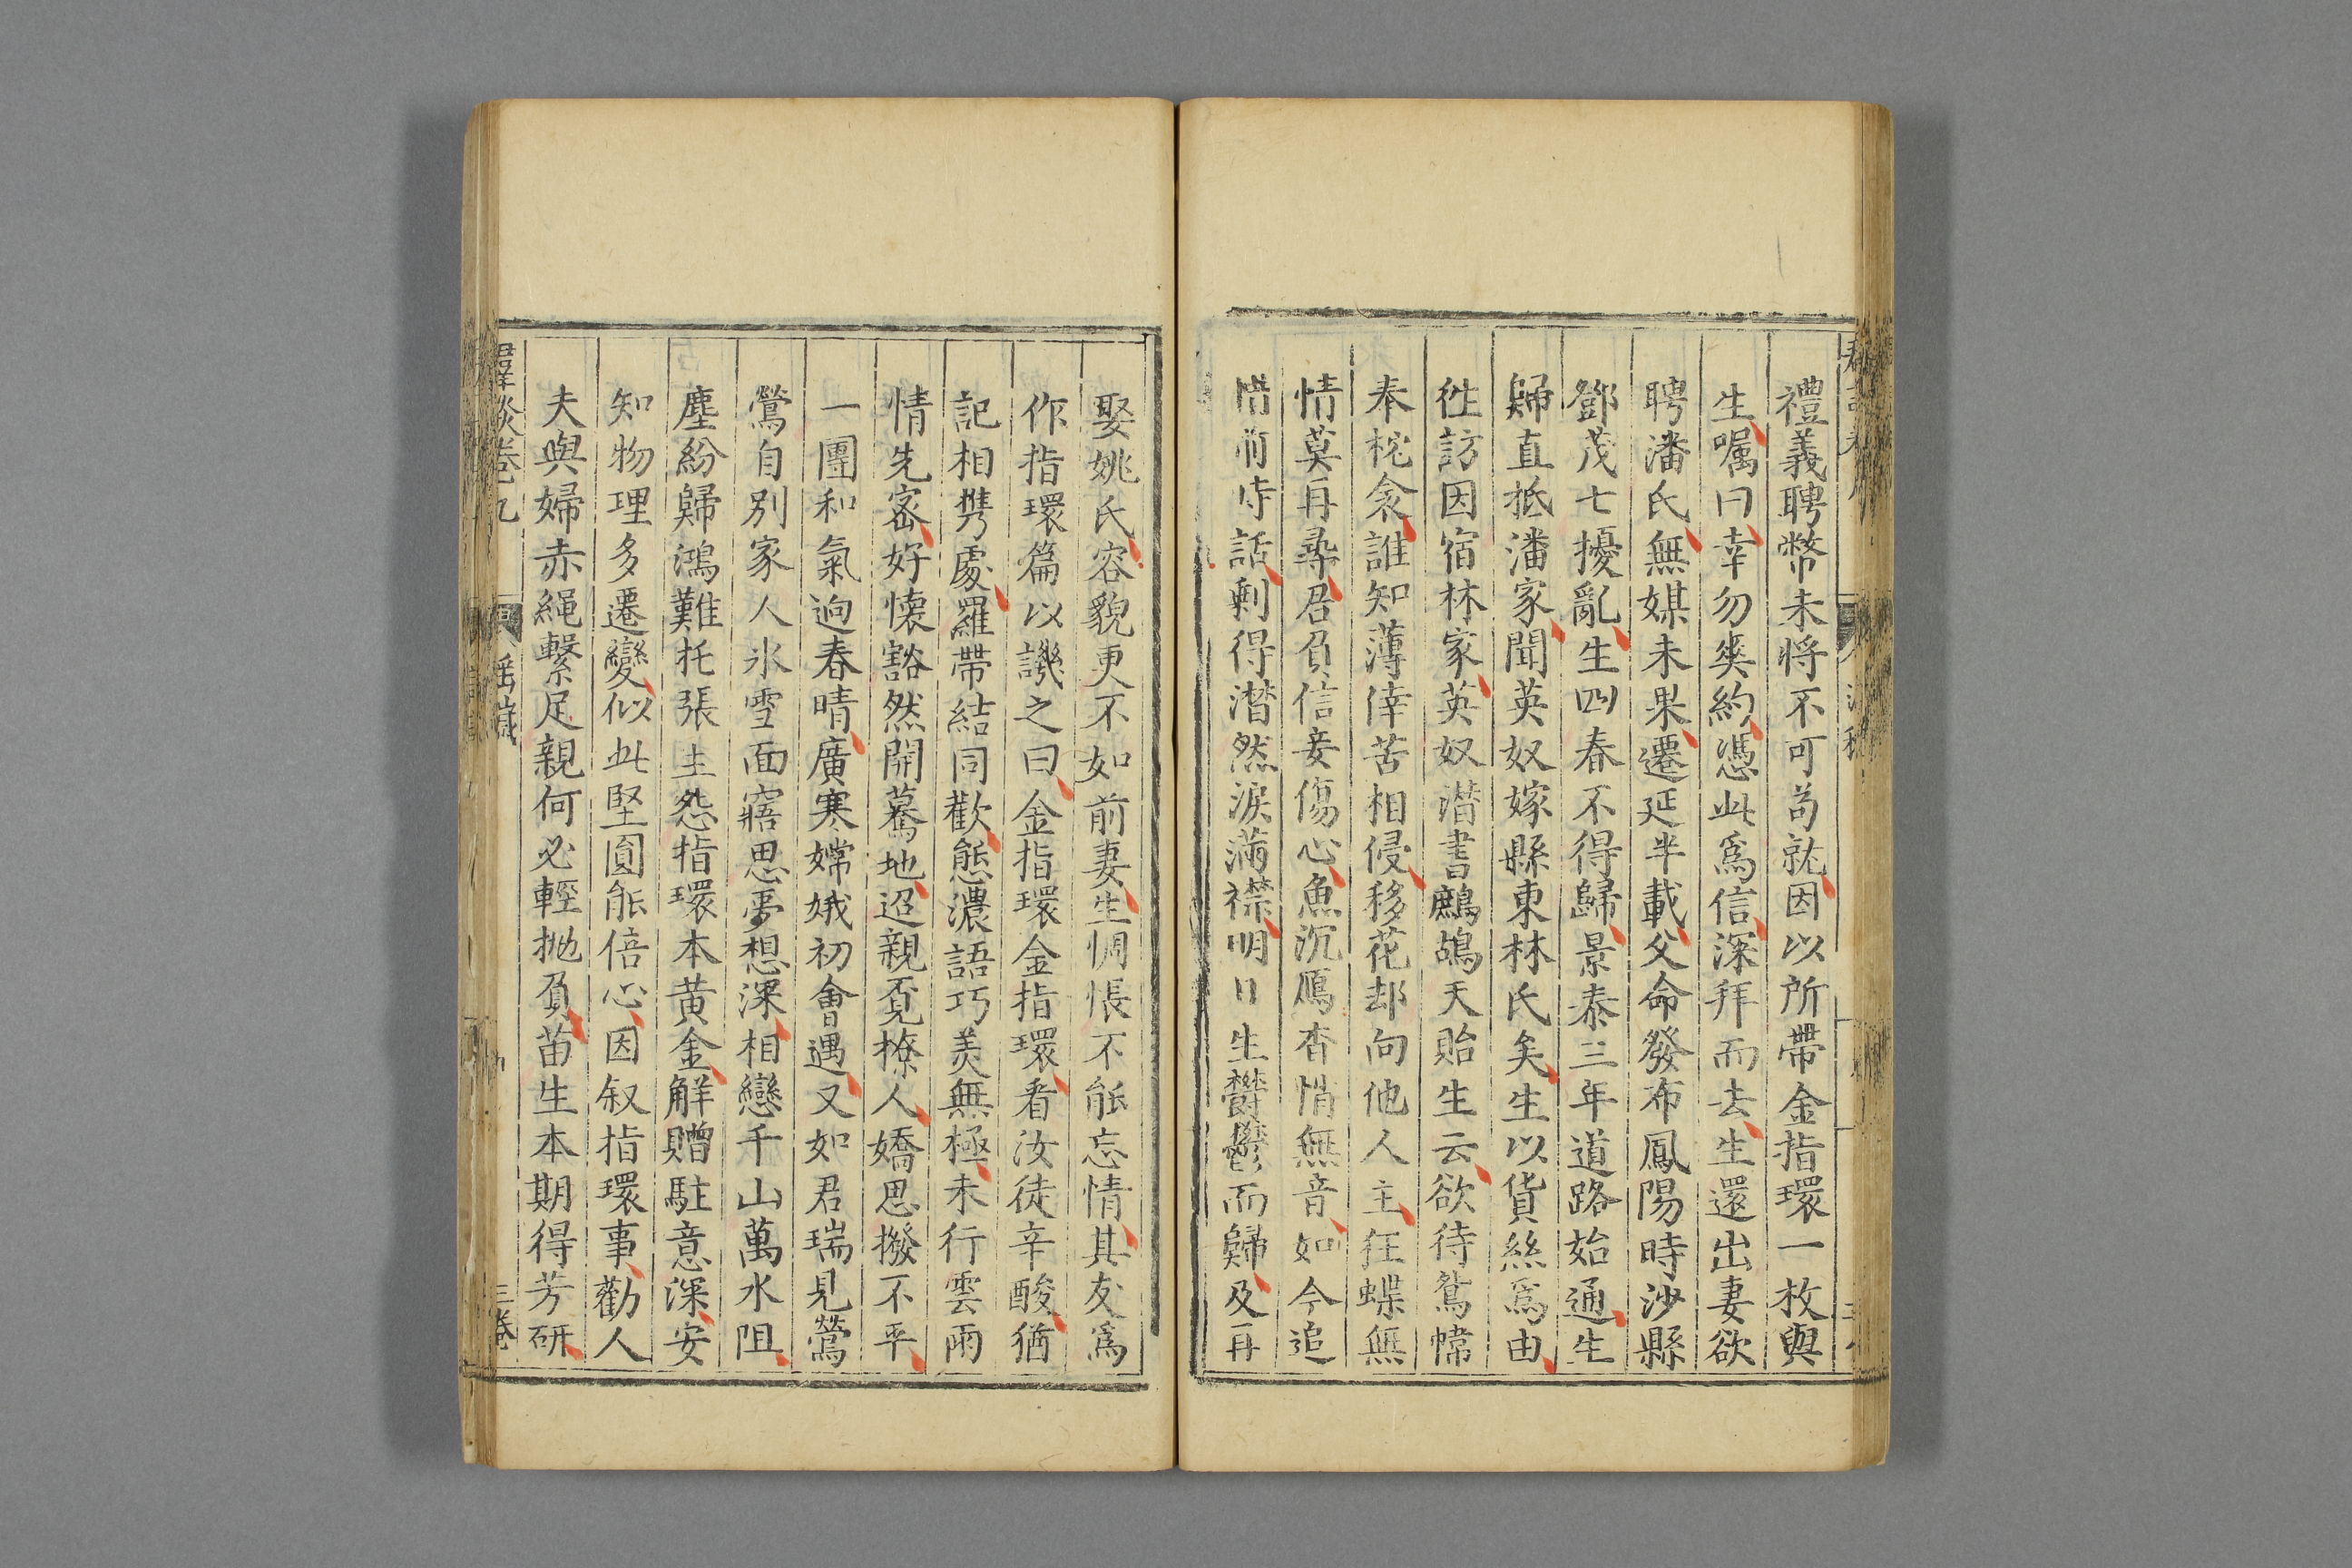 禮義聘幣未將不可苟就因以所帶金指環一枚與
生囑曰幸勿爽約憑此爲信深拜而去生還出妻欲
聘潘氏無媒未果遷延半載父命發布鳳陽時沙縣
鄧茂七擾亂生四春不得歸景泰三年道路始通生
歸直抵潘家聞英奴嫁縣東林氏矣生以貨絲爲由
徃訪因宿林家英奴潛書鷓鴣天貽生云欲待鴛幃
奉枕衾誰知薄倖苦相侵移花却向他人主狂蝶無
情莫再尋君負信妾傷心魚沉鴈杳悄無音如今追
惜前時話剩得潛然淚滿襟明日生欝鬱而歸及再
娶姚氏容貌更不如前妻生惆悵不能忘情其友爲
作指環篇以譏之曰金指環金指環看汝徒辛酸猶
記相携處羅帶結同歡態濃語巧羙無極未行雲雨
情先密好懷豁然開驀地迢親覔撩人嬌思撥不平
一團和氣逈春晴廣寒嫦娥初會遇又如君瑞見鶯
鶯自別家人氷雪面寤思夢想深相戀千山萬水阻
塵紛歸鴻難托張生怨指環本黄金解贈駐意深安
知物理多遷變似此堅圓能倍心因叙指環事勸人
夫與婦赤繩繫足親何必輕抛負苗生本期得芳研
羣談卷九